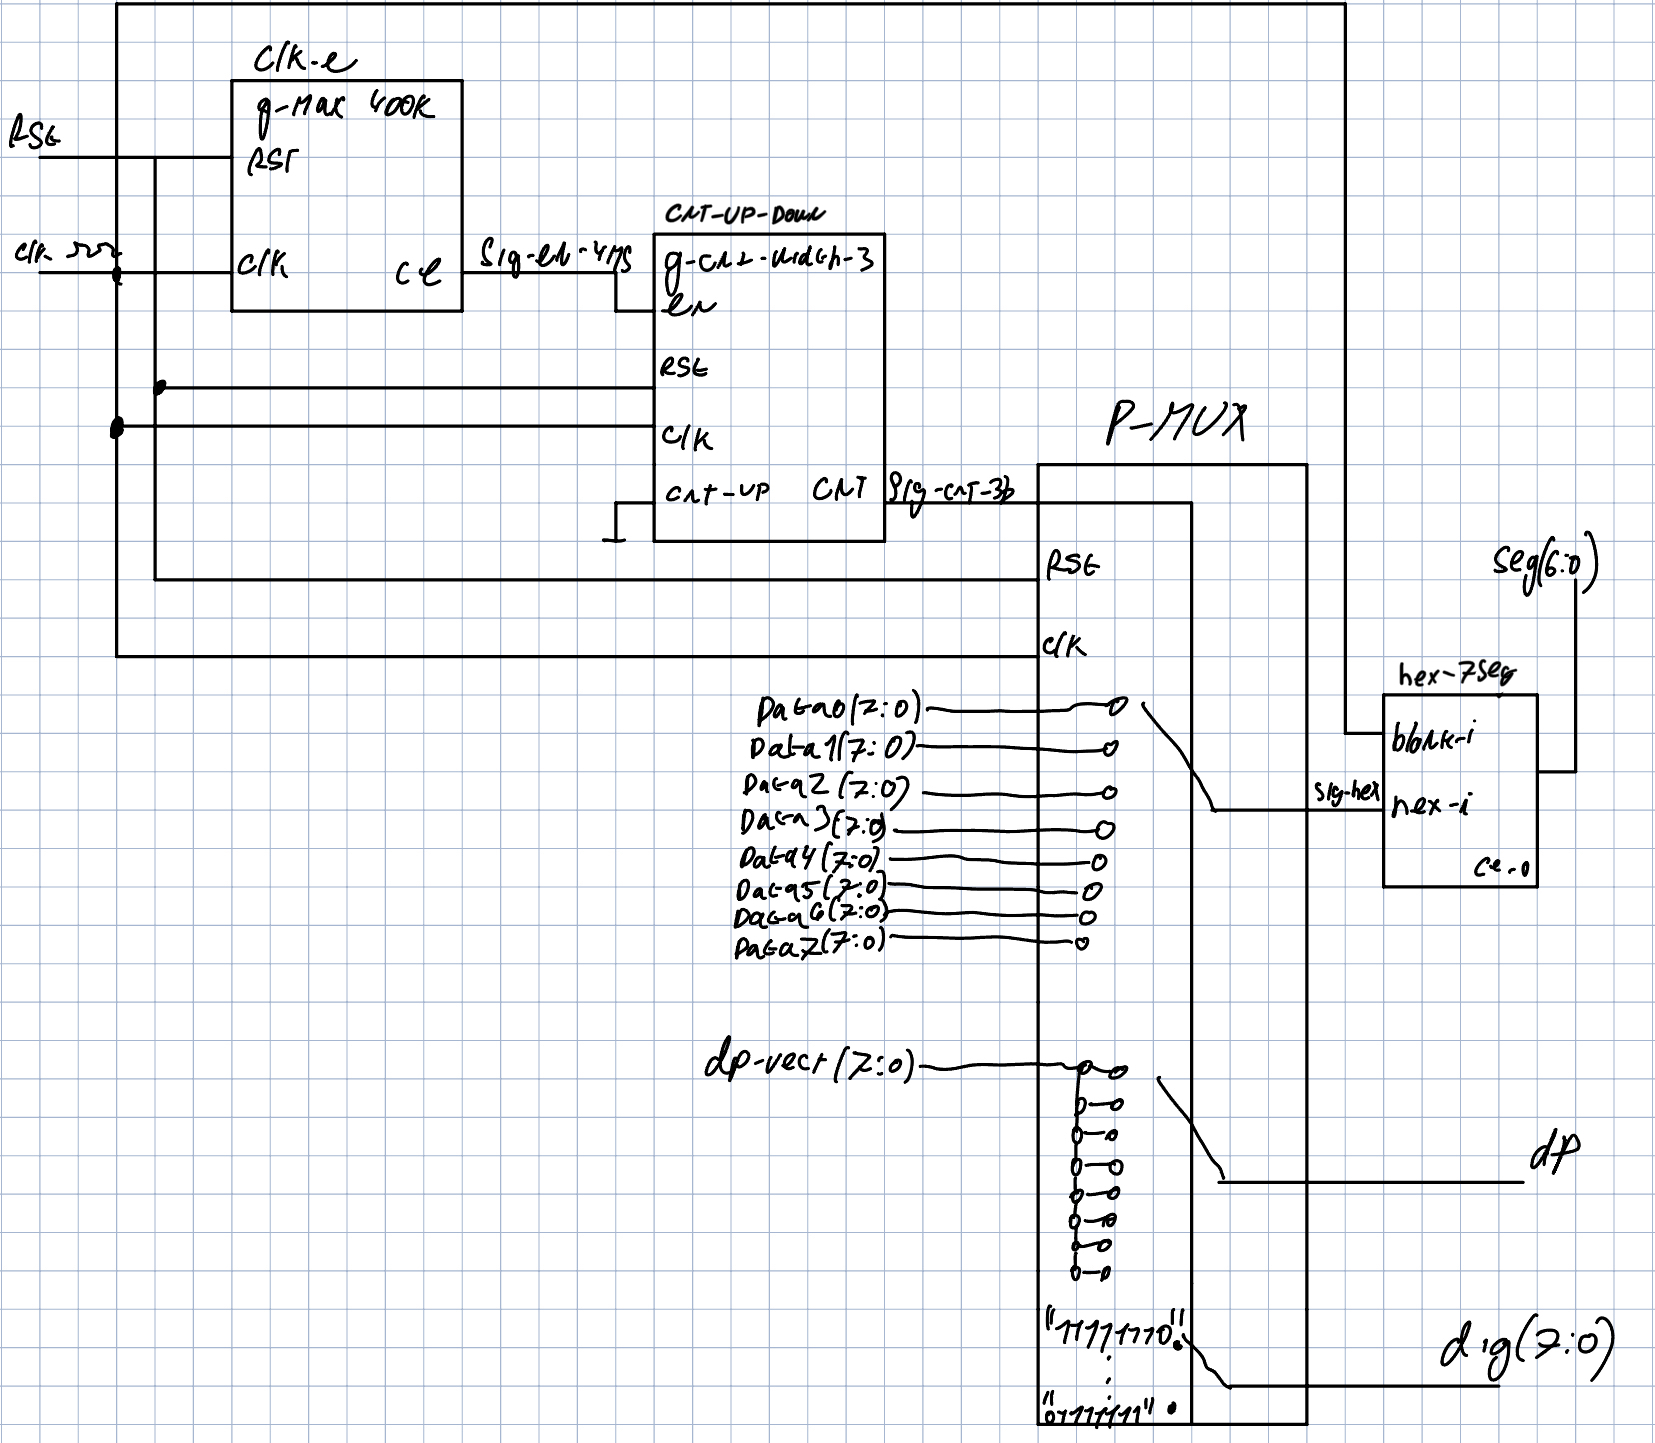 Clk-e
g-Max 400K
RSt
RST
Clk
Clk
Ce
Sig-en-4MS
CNT-UP-Down
g-cnt-width-3
en
RSt
Clk
cnt-UP
CNT
Sig-cnt-3b
P-MUX
RSt
Clk
Data0(7:0)
Data1(7:0)
Data2(7:0)
Data3(7:0)
Data4(7:0)
Data5(7:0)
Data6(7:0)
Data7(7:0)
dp-vect(7:0)
"11111110"
"01111111"
seg(6:0)
hex-7seg
blank-i
sig-hex
hex-i
ce-o
dp
dig(7:0)